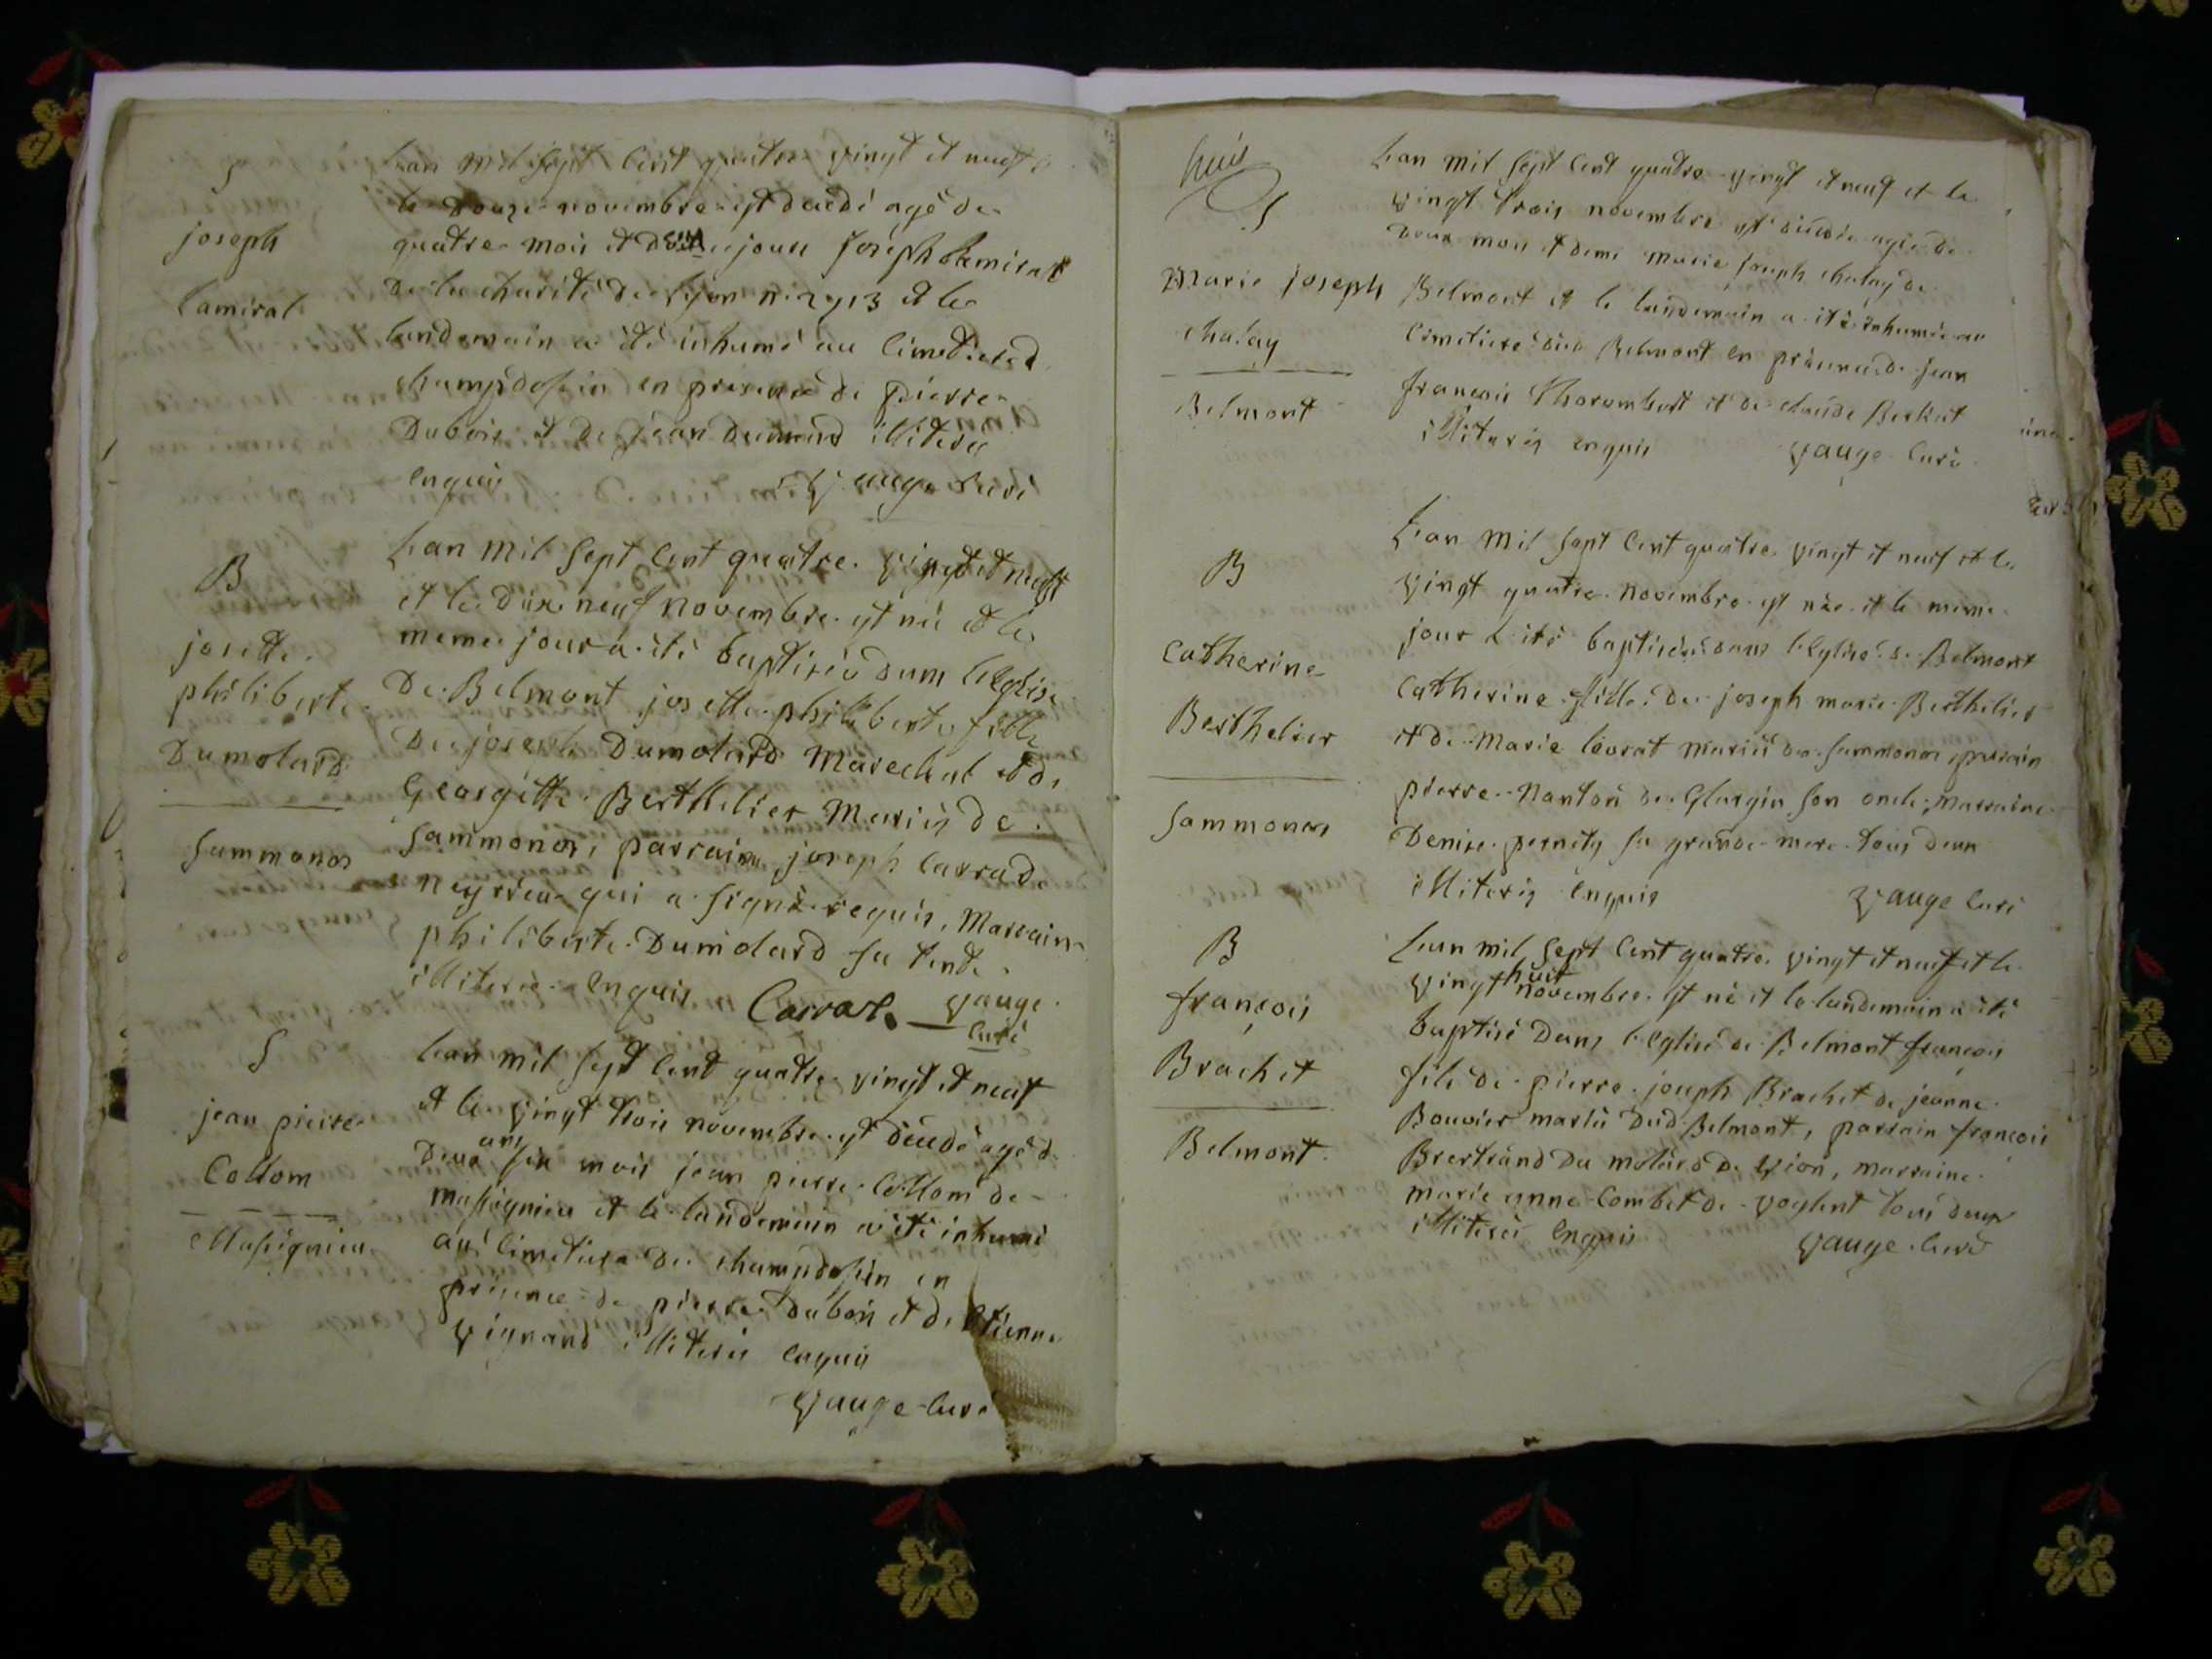 S
joseph
Lamiral
Lan mil sept Cent quatre vingt et neuf
le Douze novembre est decedé agé de
quatre mois et jours joseph Lamiral
De la charité de Lyon n. 2713 et le
landemain a été inhumé au Cimetiere d
champdossin en presence de pierre
Dubois et De jean illiteres
enquis Vauge curé
B
josette
philiberte
Dumolard
Sammonos
Lan mil sept Cent quatre vingt et neuf
et le dix neuf novembre est née et le
meme jour a été baptisée dans l'Eglise
De Belmont josette philiberte fille
De joseph Dumolard Marechal et de
Georgette Berthelier Mariés de
Sammonos, parrain joseph Carra de
neyrieu qui a signé requis, Marraine
philiberte Dumolard sa tante
illiterée enquis Carrat Vauge
curé
S
jean pierre
Collom
Massignieu
Lan mil sept Cent quatre vingt et neuf
et le vingt trois novembre est décédé agé d
Deux ans six mois jean pierre Collom de
massignieu et le landemain a été inhumé
au Cimetiere De champdossin en
présence de pierre dubois et de Etienne
vignand illiterés enquis
Vauge curé
huis
S
Marie joseph
chalay
Belmont
Lan mil sept Cent quatre vingt et neuf et le
vingt trois novembre est décédée agée de
Deux mois et demi marie joseph chalay de
Belmont et le landemain a été inhumée au
Cimetiere dud Belmont en présence de jean
françois Thorombert et de claude Berliet
illiterés enquis Vauge Curé
B
Catherine
Berthelier
Sammonos
Lan mil sept Cent quatre vingt et neuf et le
vingt quatre novembre est née et le meme
jour a été baptisée dans l'Eglise de Belmont
Catherine fille de joseph marie Berthelier
et de Marie levrat mariés de Sammonos, parrain
pierre Nanton de Glargin son oncle, marraine
Denise pernety sa grande mere tous deux
illiterés enquis Vauge Curé
B
françois
Brachet
Belmont
Lan mil sept Cent quatre vingt et neuf et le
vingt huit novembre est né et le landemain a été
baptisé Dans l'Eglise de Belmont françois
fils de pierre joseph Brachet de jeanne
Bouvier mariés Dud Belmont, parrain françois
Brertrand Du molard De Vion, marraine
marie anne Combet de voglent tous deux
illiterés enquis Vauge Curé